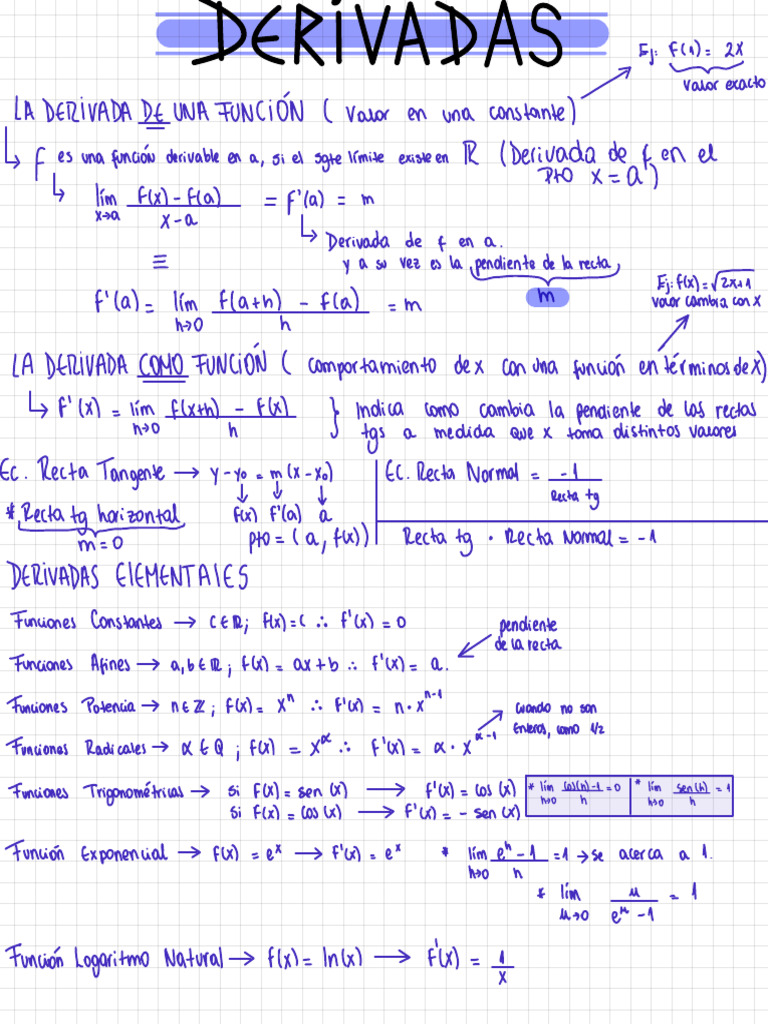 DERIVADAS
Ej: f(1) = 2x
valor exacto
LA DERIVADA DE UNA FUNCIÓN ( valor en una constante)
f es una función derivable en a, si el sgte límite existe en ℝ (Derivada de f en el
pto x = a)
lím x→a f(x) - f(a) / x - a = f'(a) = m
Derivada de f en a.
y a su vez es la pendiente de la recta
m
≡
f'(a) = lím h→0 f(a+h) - f(a) / h = m
Ej: f(x) = √2x+1
valor cambia con x
LA DERIVADA COMO FUNCIÓN ( comportamiento de x con una función en términos de x)
f'(x) = lím h→0 f(x+h) - f(x) / h } Indica como cambia la pendiente de las rectas
tgs a medida que x toma distintos valores
Ec. Recta Tangente → y - y₀ = m (x - x₀)
f(x) f'(a) a
* Recta tg horizontal
m = 0
pto = ( a, f(x))
EC. Recta Normal = -1 / Recta tg
Recta tg · Recta Normal = -1
DERIVADAS ElEMENTAlES
Funciones Constantes → c ∈ ℝ; f(x) = c ∴ f'(x) = 0
pendiente
de la recta
Funciones Afines → a, b ∈ ℝ ; f(x) = ax + b ∴ f'(x) = a.
Funciones Potencia → n ∈ ℤ ; f(x) = xⁿ ∴ f'(x) = n · xⁿ⁻¹
cuando no son
enteros, como 1/2
Funciones Radicales → α ∈ Q ; f(x) = x^α ∴ f'(x) = α · x^α-1
Funciones Trigonométricas → si f(x) = sen (x) → f'(x) = cos (x)
si f(x) = cos (x) → f'(x) = - sen (x)
* lím h→0 cos(h) - 1 / h = 0
* lím h→0 sen(h) / h = 1
Función Exponencial → f(x) = eˣ → f'(x) = eˣ
* lím h→0 eʰ - 1 / h = 1 → se acerca a 1.
* lím u→0 u / eᵘ - 1 = 1
Función Logaritmo Natural → f(x) = ln(x) → f'(x) = 1 / x